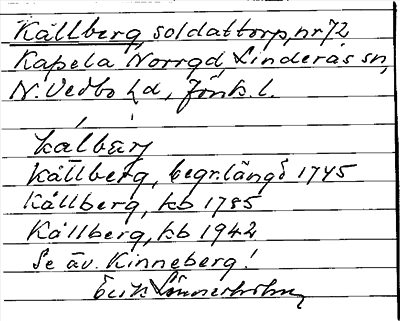 Kållberg, soldattorp, nr 72
Kapela Norrgd, Linderås sn,
N. Vedbo hd, Jönk. l.
kálbærj
Kållberg, begr.längd 1745
Kållberg, kb 1785
Kållberg, kb 1942
Se äv. Kinneberg!
Erik Linnerholm